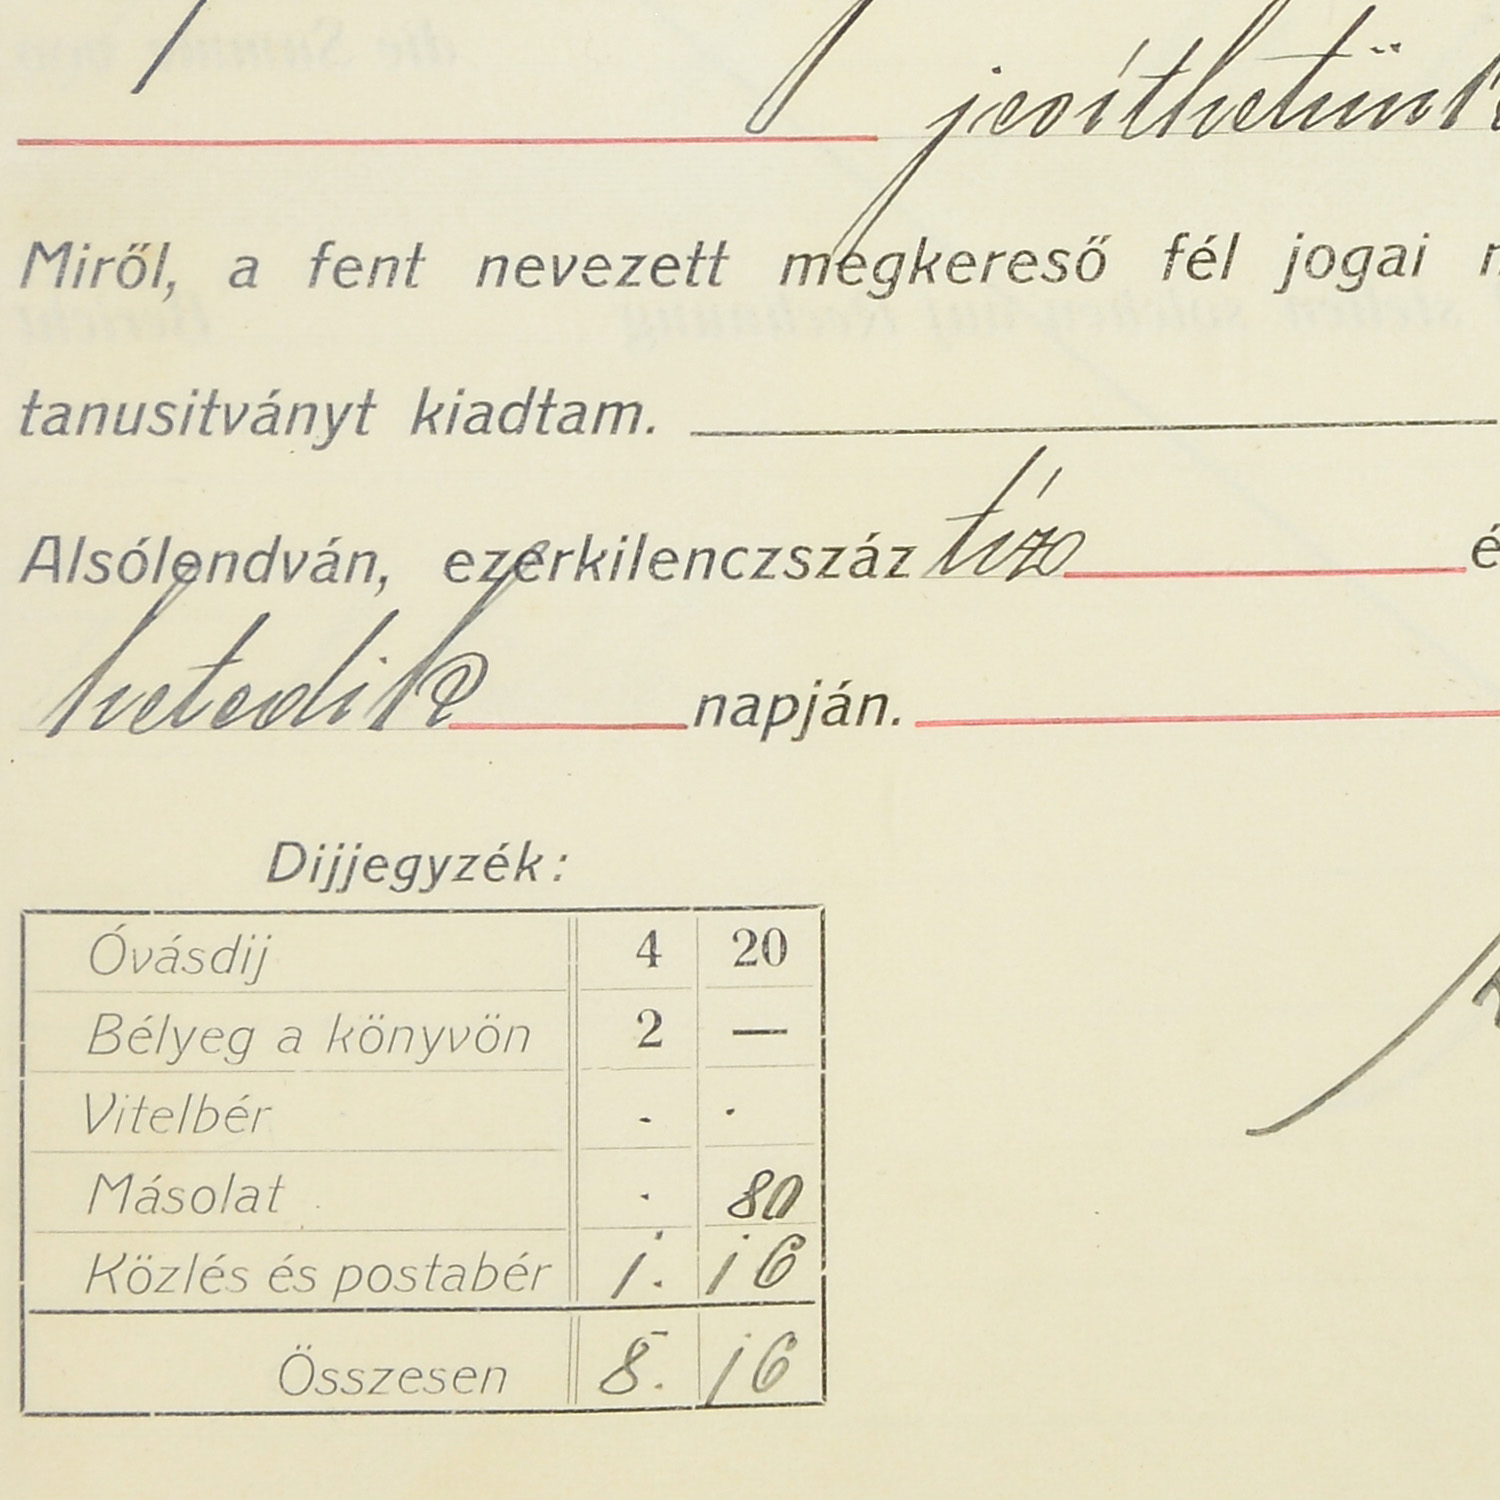 jesíthetünk
Miről, a fent nevezett megkereső fél jogai
tanusitványt kiadtam.
Alsólendván, ezerkilenczszáz tíz é
hetedik napján.
Dijjegyzék:
Óvásdij 4 20
Bélyeg a könyvön 2 —
Vitelbér . .
Másolat . 80
Közlés és postabér 1. 16
Összesen 8. 16